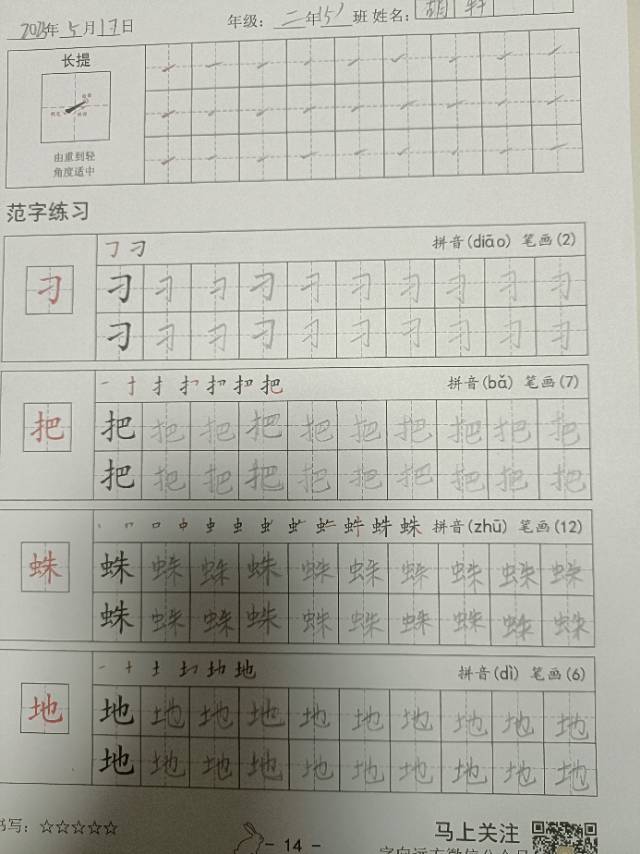 2023年5月17日 年级：二年(5)班 姓名：
长提
由重到轻
角度适中
范字练习
刁 拼音(diāo) 笔画(2)
刁 刁 刁 刁 刁 刁 刁 刁 刁 刁
刁 刁 刁 刁 刁 刁 刁 刁 刁 刁
把 拼音(bǎ) 笔画(7)
把 把 把 把 把 把 把 把 把 把
把 把 把 把 把 把 把 把 把 把
蛛 拼音(zhū) 笔画(12)
蛛 蛛 蛛 蛛 蛛 蛛 蛛 蛛 蛛 蛛
蛛 蛛 蛛 蛛 蛛 蛛 蛛 蛛 蛛 蛛
地 拼音(dì) 笔画(6)
地 地 地 地 地 地 地 地 地 地
地 地 地 地 地 地 地 地 地 地
书写：☆☆☆☆☆
- 14 -
马上关注